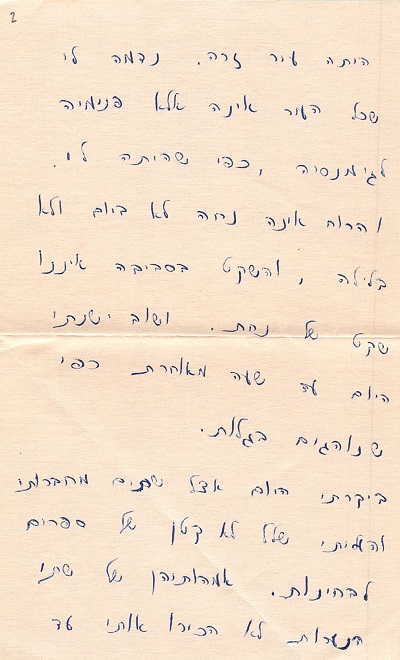 2
היתה עיר זרה. נדמה לי
שכל העיר אינה אלא פנימיה
לגימנסיה, כפי שהיתה לו.
והרוח אינה נחה לא ביום ולא
בלילה, והשקט בסביבה איננו
שקט של נחת. ושוב ישנתי
היום עד שעה מאוחרת כפי
שנוהגים בגלות.
ביקרתי היום אצל שתים מחברותי
והעליתי שלל לא קטן של ספרים
לבחינות. אמהותיהן של שתי
הנערות לא הכירו אותי עד